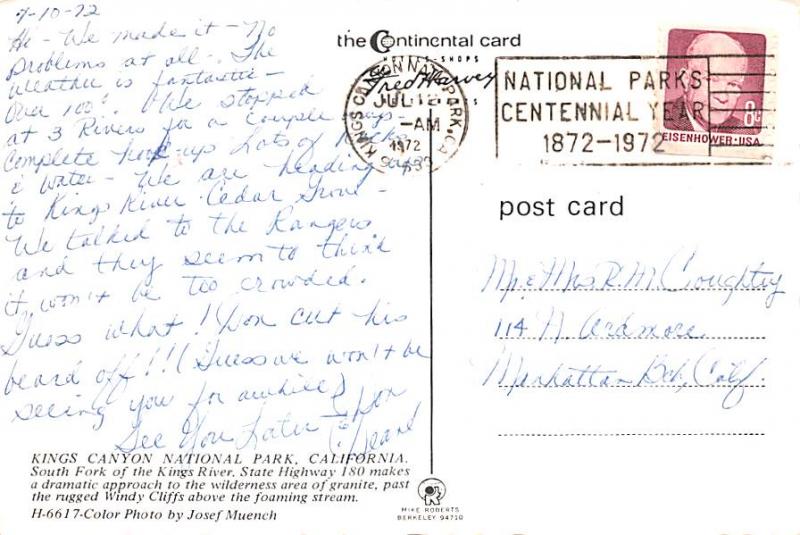 7-10-72
Hi - We made it - No
problems at all - The
weather is fantastic -
Over 100°! We stopped
at 3 Rivers for a couple days -
Complete hook-ups Lots of
& water - We are heading
to Kings River Cedar Grove -
We talked to the Rangers
and they seem to think
it won't be too crowded.
Guess what! Don cut his
beard off!!! (Guess we won't be
seeing you for awhile)
See You Later Don
& Jean
KINGS CANYON NATIONAL PARK, CALIFORNIA.
South Fork of the Kings River. State Highway 180 makes
a dramatic approach to the wilderness area of granite, past
the rugged Windy Cliffs above the foaming stream.
H-6617-Color Photo by Josef Muench
the Continental card
Fred Harvey
KINGS CANYON NAT. PARK, CA
JUL 12
AM
1972
NATIONAL PARKS
CENTENNIAL YEAR
1872-1972
8c
EISENHOWER·USA
post card
Mr & Mrs R. M. Coughtry
114 N. Ardmore
Manhattan Bch, Calif.
MIKE ROBERTS
BERKELEY 94710